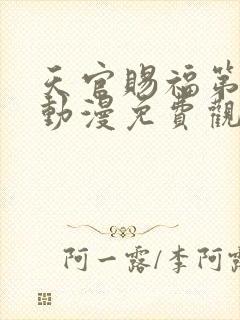 天官賜福第
動漫免費觀
阿一露/李阿露